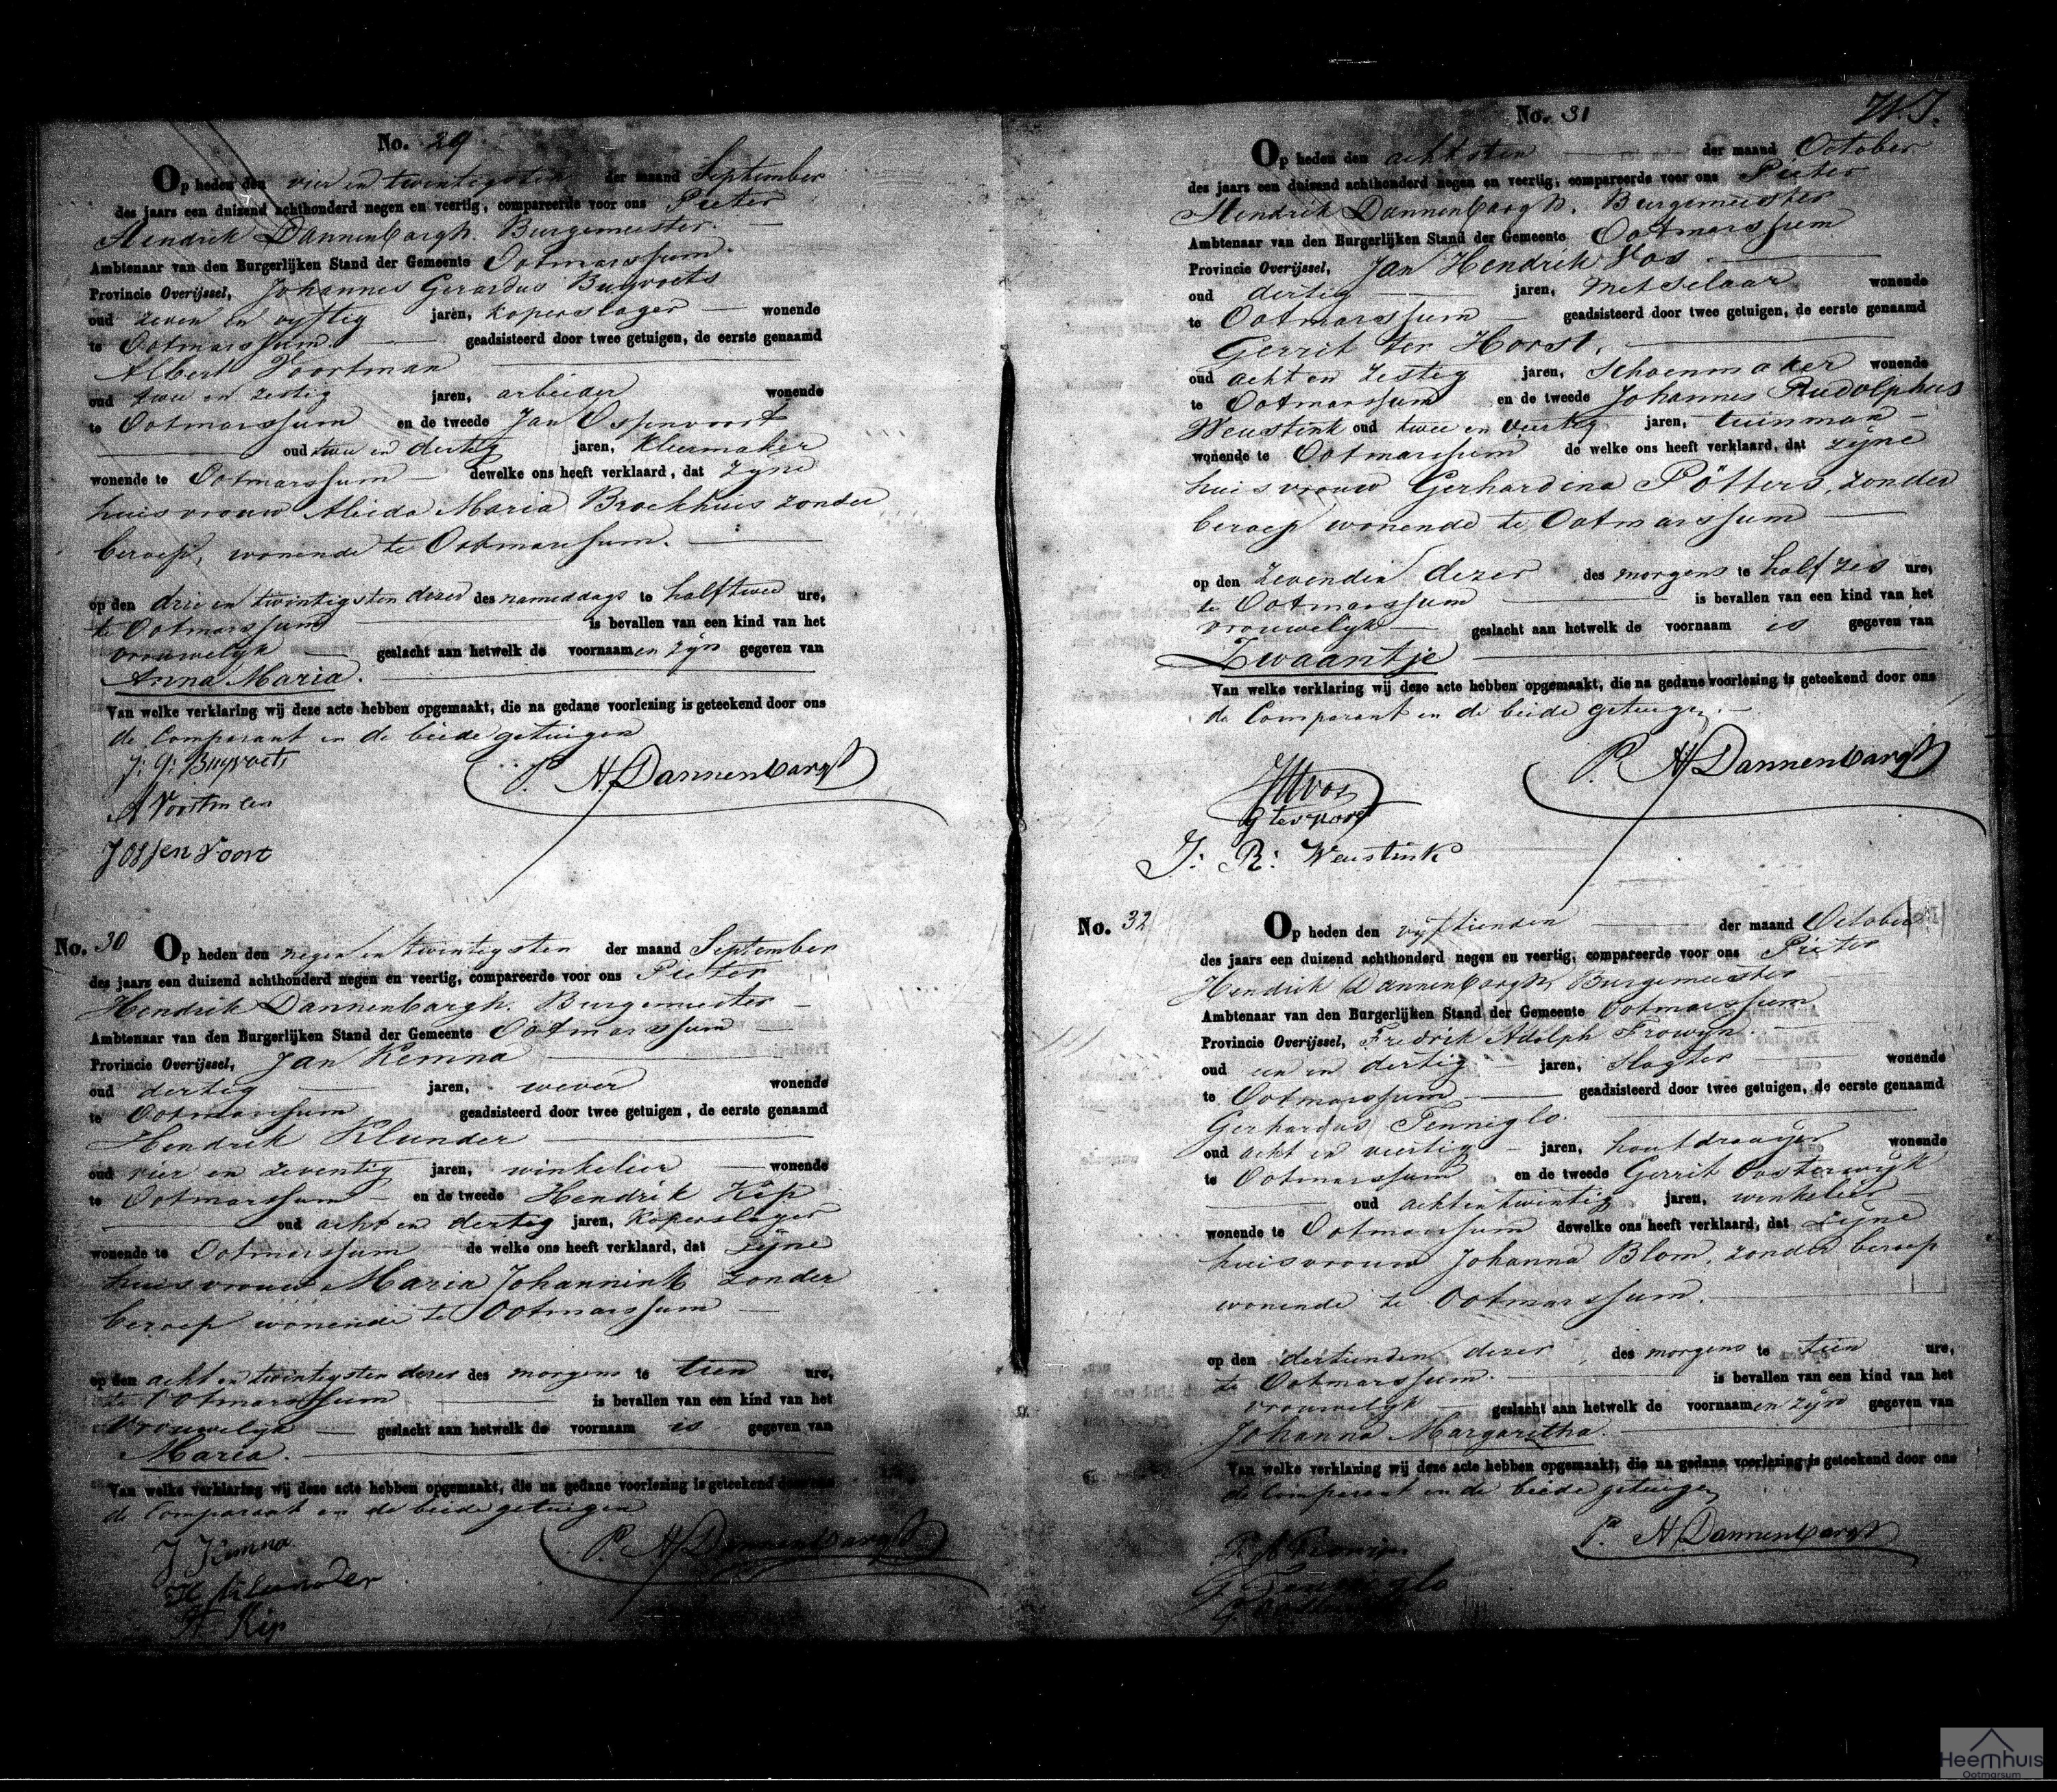 No. 29
Op heden den vier en twintigsten der maand September
des jaars een duizend achthonderd negen en veertig, compareerde voor ons Pieter
Hendrik Dannenbargh. Burgemeester.
Ambtenaar van den Burgerlijken Stand der Gemeente Ootmarssum.
Provincie Overijssel, Johannes Gerardus Buyvoets
oud zeven en vyftig jaren, koperslager wonende
te Ootmarssum. geadsisteerd door twee getuigen, de eerste genaamd
Albert Voortman
oud twee en zestig jaren, arbeider wonende
te Ootmarssum en de tweede Jan Ossenvoort
oud twee en dertig jaren, kleermaker
wonende te Ootmarssum dewelke ons heeft verklaard, dat zyne
huisvrouw Aleida Maria Brockhuis zonder
beroep, wonende te Ootmarssum.
op den drie en twintigsten dezer des nameddags te half twee ure,
te Ootmarssum is bevallen van een kind van het
vrouwelyk geslacht aan hetwelk de voornaamen zyn gegeven van
Anna Maria.
Van welke verklaring wij deze acte hebben opgemaakt, die na gedane voorlezing is geteekend door ons
de Comparant en de beide getuigen
J: G: Buyvoets
P. H Dannenbargh
A Voortman
J Ossenvoort
No. 30
Op heden den negen en twintigsten der maand September
des jaars een duizend achthonderd negen en veertig, compareerde voor ons Pieter
Hendrik Dannenbargh. Burgemeester
Ambtenaar van den Burgerlijken Stand der Gemeente Ootmarssum
Provincie Overijssel, Jan Kemna
oud dertig jaren, wever wonende
te Ootmarssum geadsisteerd door twee getuigen, de eerste genaamd
Hendrik Klunder
oud vier en zeventig jaren, winkelier wonende
te Ootmarssum en de tweede Hendrik Kip
oud acht en dertig jaren, koperslager
wonende te Ootmarssum de welke ons heeft verklaard, dat zyne
huisvrouw Maria Johannink zonder
beroep wonende te Ootmarssum
op den acht en twintigsten dezer des morgens te tien ure,
te Ootmarssum is bevallen van een kind van het
vrouwelyk geslacht aan hetwelk de voornaam is gegeven van
Maria.
Van welke verklaring wij deze acte hebben opgemaakt, die na gedane voorlezing is geteekend door ons
de Comparant en de beide getuigen
J Kemna
P. H Dannenbargh
H Klunder
H Kip
No. 31
Op heden den achtsten der maand October
des jaars een duizend achthonderd negen en veertig, compareerde voor ons Pieter
Hendrik Dannenbargh. Burgemeester
Ambtenaar van den Burgerlijken Stand der Gemeente Ootmarssum
Provincie Overijssel, Jan Hendrik Vos.
oud dertig jaren, metselaar wonende
te Ootmarssum geadsisteerd door twee getuigen, de eerste genaamd
Gerrit ter Horst.
oud acht en zestig jaren, schoenmaker wonende
te Ootmarssum en de tweede Johannes Rudolphus
Weustink oud twee en veertig jaren, tuinman
wonende te Ootmarssum de welke ons heeft verklaard, dat zyne
huisvrouw Gerhardina Pötters, zonder
beroep wonende te Ootmarssum
op den zevenden dezer des morgens te half zes ure,
te Ootmarssum is bevallen van een kind van het
vrouwelyk geslacht aan hetwelk de voornaam is gegeven van
Zwaantje
Van welke verklaring wij deze acte hebben opgemaakt, die na gedane voorlezing is geteekend door ons
de Comparant en de beide getuigen.
P. H Dannenbargh
JH Vos
G ter Horst
J: R: Weustink
No. 32
Op heden den vyftienden der maand October
des jaars een duizend achthonderd negen en veertig, compareerde voor ons Pieter
Hendrik Dannenbargh, Burgemeester
Ambtenaar van den Burgerlijken Stand der Gemeente Ootmarssum
Provincie Overijssel, Fredrik Adolph Frowyn.
oud een en dertig jaren, slagter wonende
te Ootmarssum geadsisteerd door twee getuigen, de eerste genaamd
Gerhardus Tenniglo.
oud acht en veertig jaren, houtdraayer wonende
te Ootmarssum en de tweede Gerrit Oosterwyk
oud acht en twintig jaren, winkelier
wonende te Ootmarssum dewelke ons heeft verklaard, dat zyne
huisvrouw Johanna Blom, zonder beroep
wonende te Ootmarssum.
op den dertienden dezer, des morgens te tien ure,
te Ootmarssum. is bevallen van een kind van het
vrouwelyk geslacht aan hetwelk de voornaamen zyn gegeven van
Johanna Margaretha.
Van welke verklaring wij deze acte hebben opgemaakt, die na gedane voorlezing is geteekend door ons
de Comparant en de beide getuigen
P. H Dannenbargh
G Tenniglo
Heemhuis
Ootmarsum